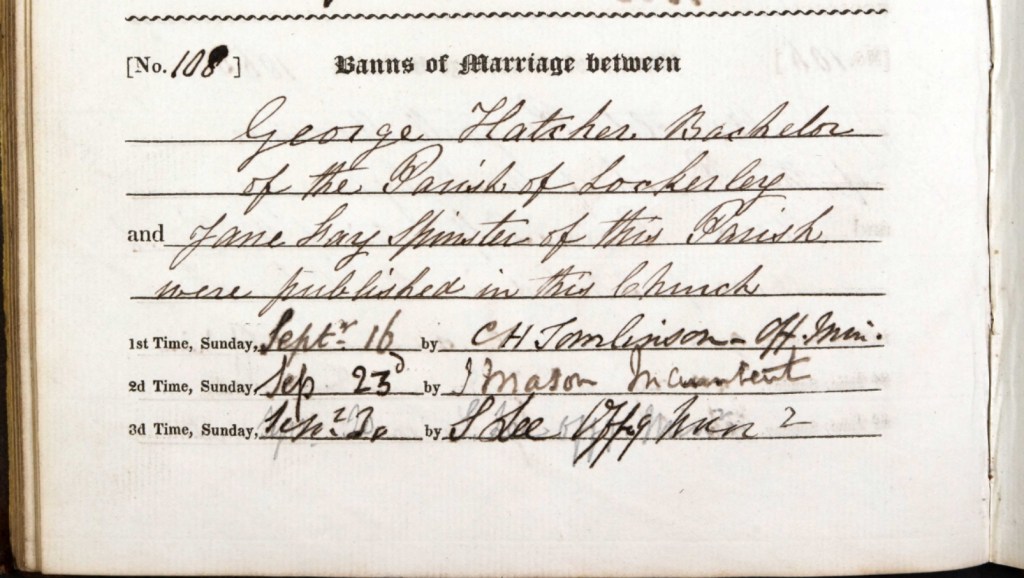 [No. 108 ] Banns of Marriage between
George Hatcher Bachelor
of the Parish of Lockerley
and Jane Gay Spinster of this Parish
were published in this Church
1st Time, Sunday, Septr 16 by C H Tomlinson - Off. Min.
2d Time, Sunday, Sep 23d by J Mason Incumbent
3d Time, Sunday, Sepr 30 by S Lee Offg Minr